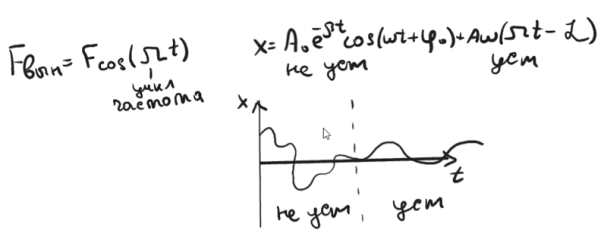 Fвын = F cos(Ωt)
цикл
частота
x = A₀e^-βt cos(ωt+φ₀)+Aw(Ωt-L)
не уст уст
x
t
не уст уст